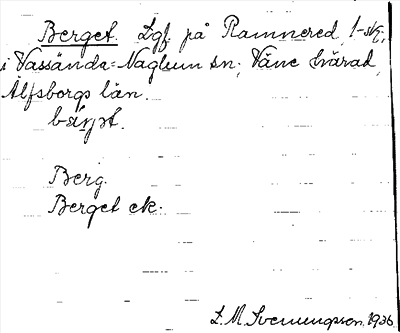 Berget. Lgf. på Ramnered, 1-stg,
i Vassända-Naglum sn; Väne härad,
Älfsborgs län.
Berg.
Berget ek.
L. M. Svenungsson. 1936